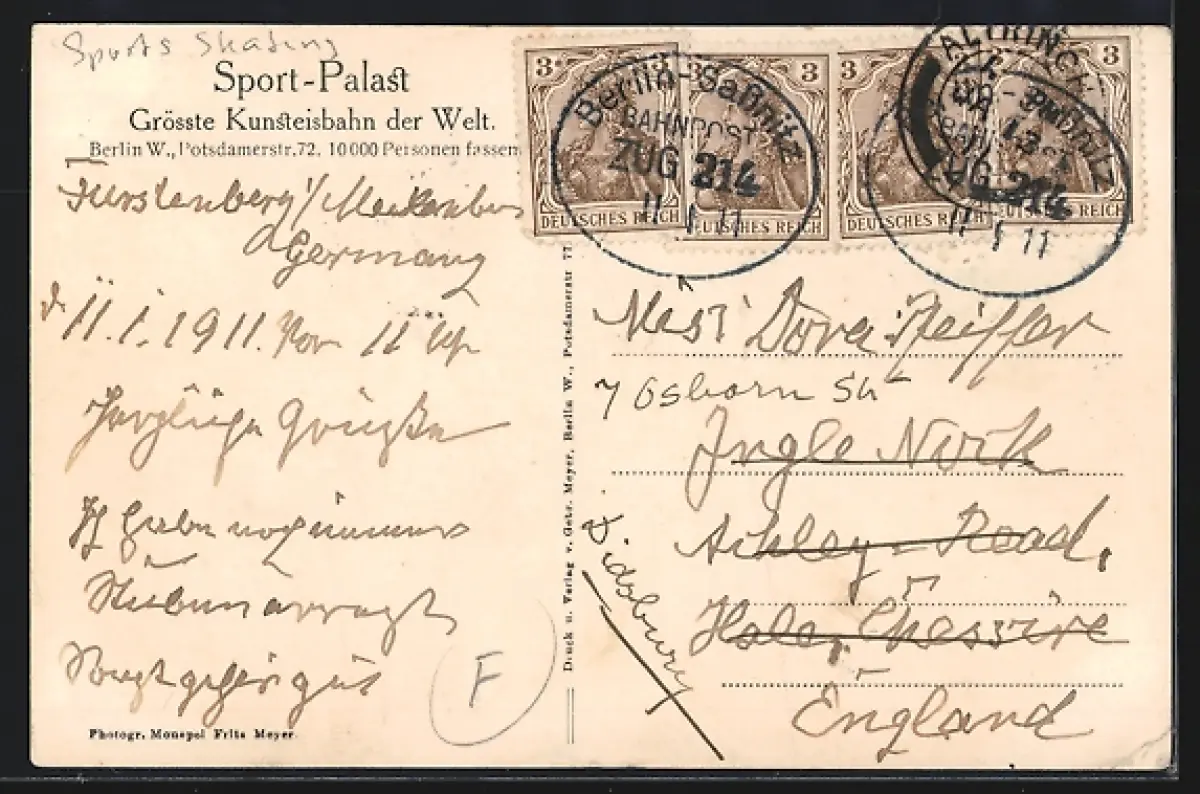 Sports Skating
Sport-Palast
Grösste Kunsteisbahn der Welt.
Berlin W., Potsdamerstr. 72. 10000 Personen fassen
Fürstenberg i/
Germany
d. 11.1.1911. Vor 11 Uhr
Herzliche Grüße
Ich habe noch immer
Stubenarrest
Sonst geht's gut
F
Photogr. Monopol Fritz Meyer.
Druck u. Verlag v. Gebr. Meyer, Berlin W., Potsdamerstr 77
3
DEUTSCHES REICH
3
DEUTSCHES REICH
3
DEUTSCHES REICH
3
DEUTSCHES REICH
Berlin-Saßnitz
BAHNPOST
ZUG 214
11 1 11
ALTRINCH
Saßnitz
ZUG 214
11 1 11
Miss Dora Pfeiffer
7 Osborn
Ingle Nook
Ashley-Road,
Hale, Chessire
England
Didsbury